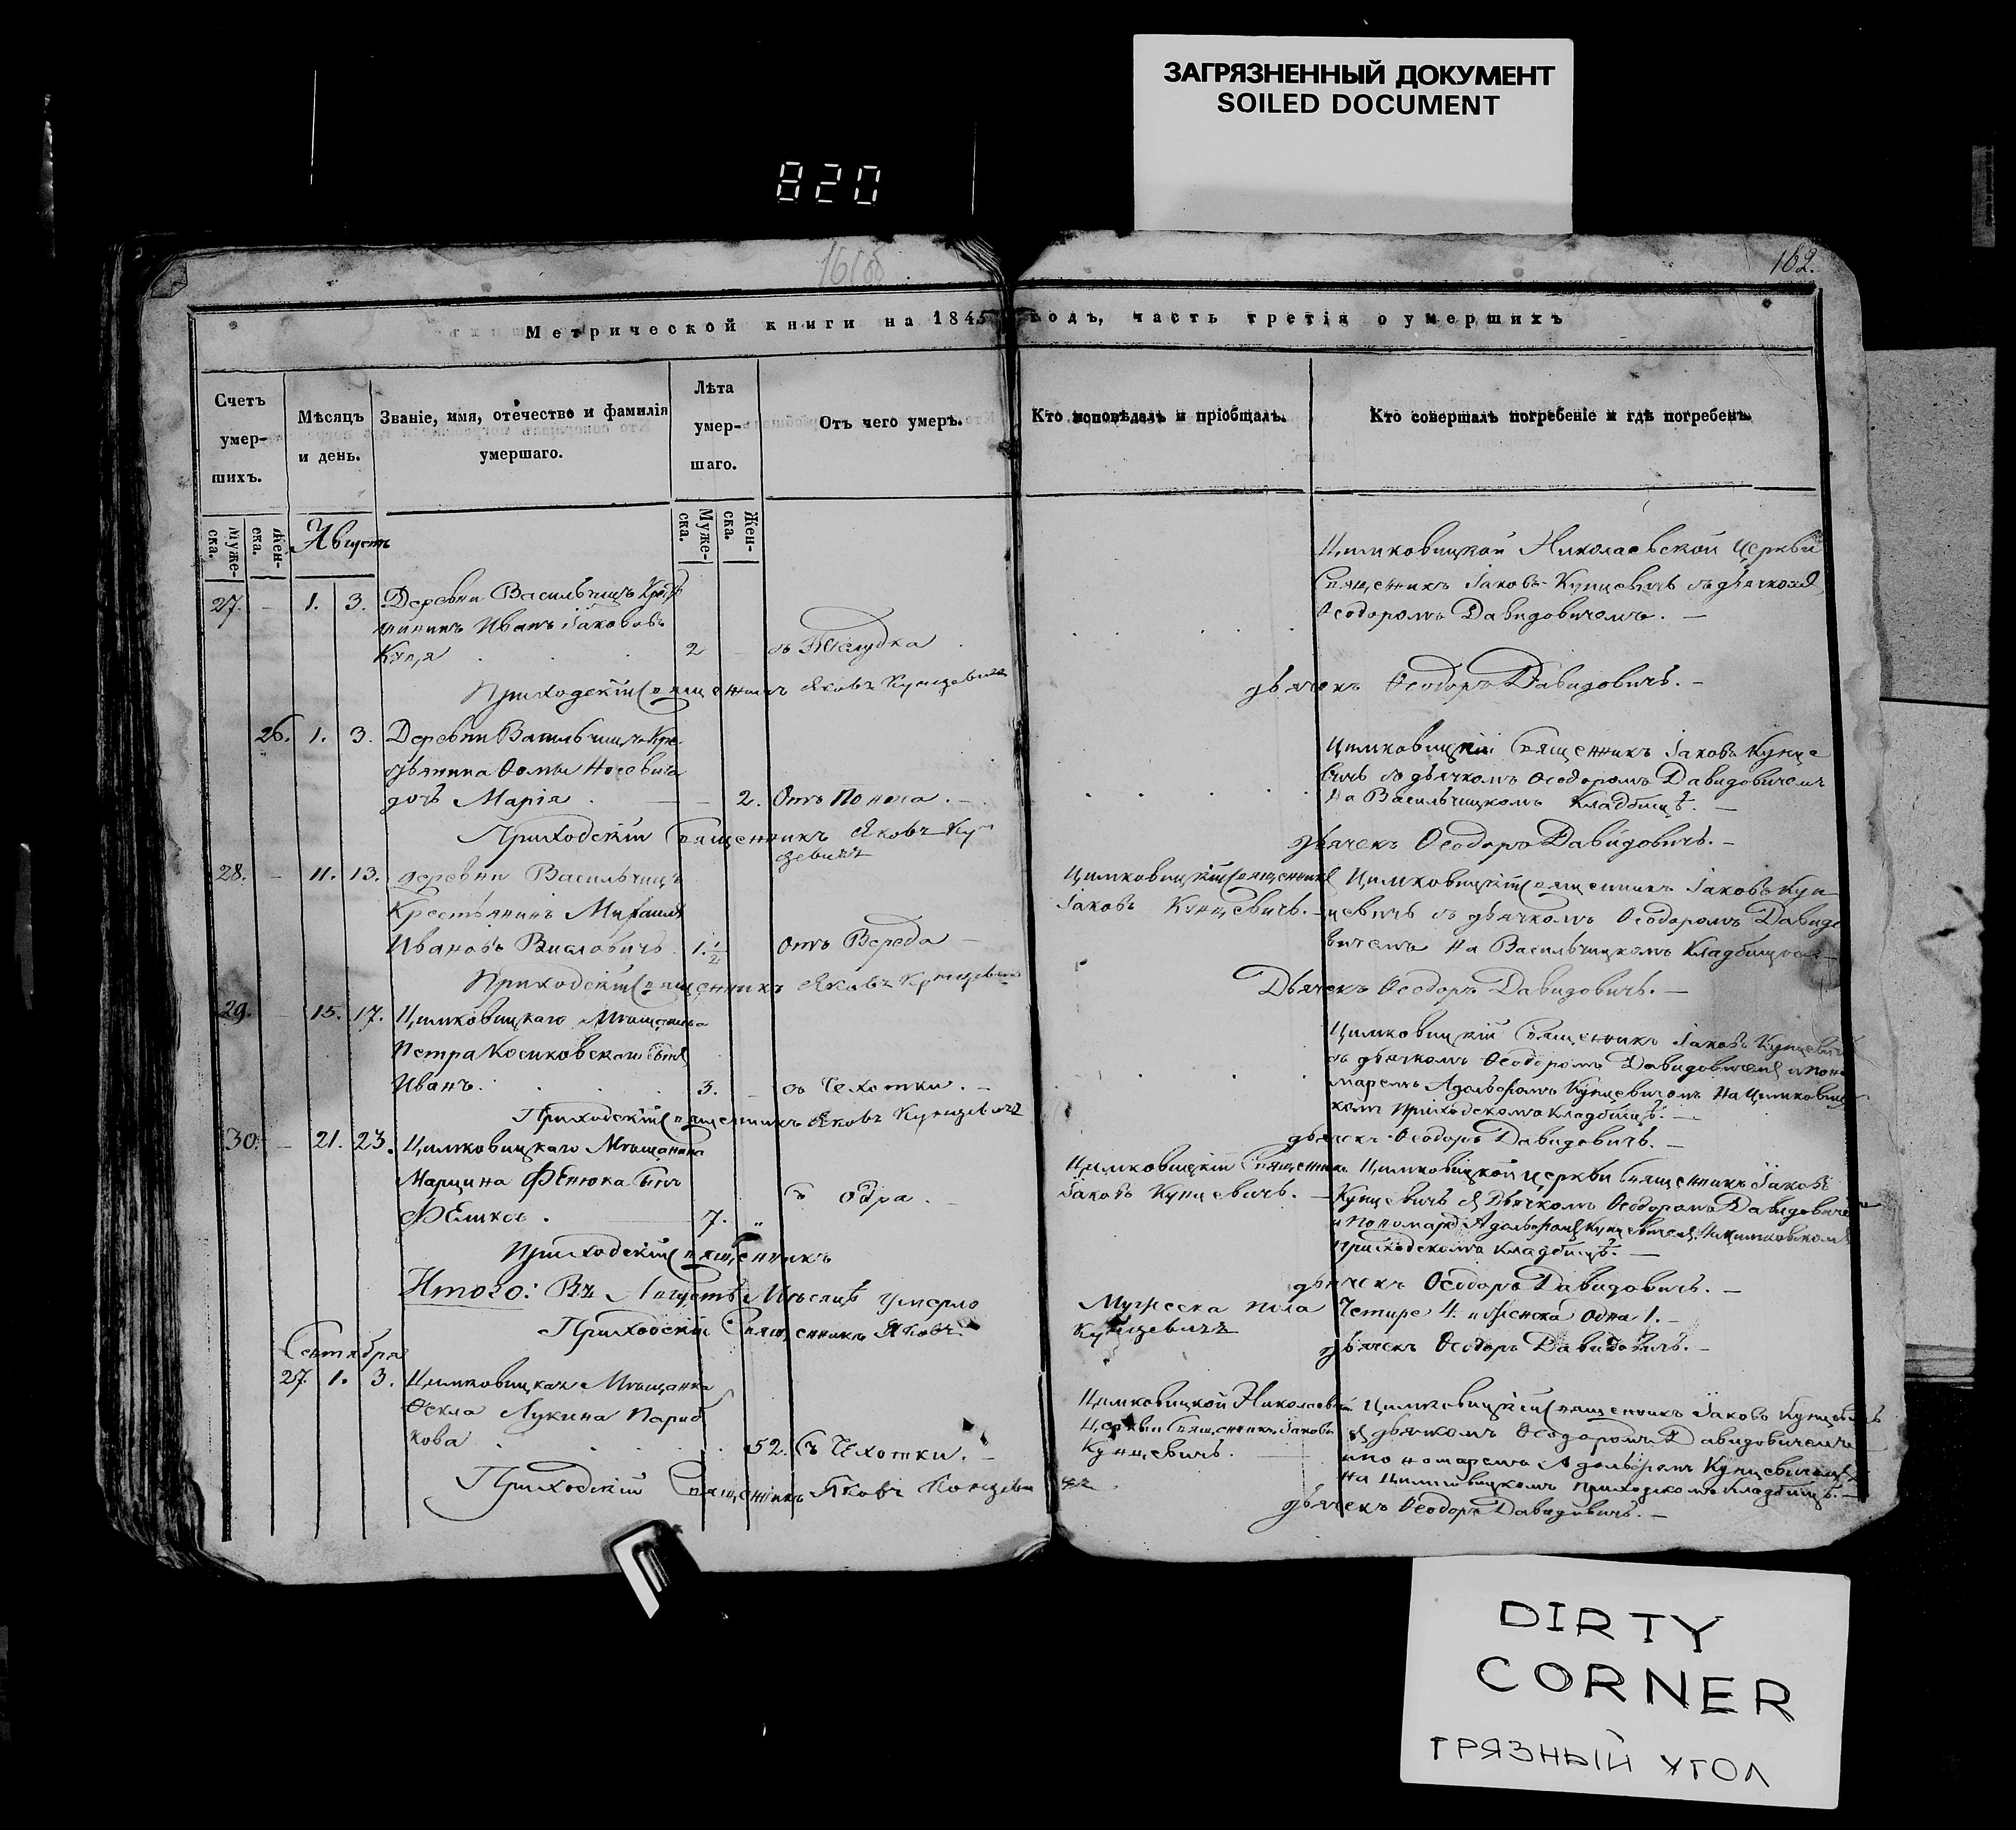 ЗАГРЯЗНЕННЫЙ ДОКУМЕНТ
SOILED DOCUMENT
820
162.
Метрической книги на 1845 годъ, часть третія о умершихъ
Счетъ умер-шихъ.
Мѣсяцъ и день.
Званіе, имя, отечество и фамилія умершаго.
Лѣта умер-шаго.
Отъ чего умеръ.
Кто исповѣдалъ и пріобщалъ.
Кто совершалъ погребеніе и гдѣ погребенъ.
Муже-ска.
Жен-ска.
Августъ
Муже-ска.
Жен-ска.
Цимковицкой Николаевской Церкви
Священникъ Іаковъ Кунцевичъ съ дьячкомъ
Ѳеодоромъ Давидовичемъ. —
27. — 1. 3. Деревни Васильчицъ Крест
янинъ Иванъ Іакововъ
Куця 2 — съ Желудка
Приходскій Священникъ Яковъ Кунцевичъ
дьячекъ Ѳеодоръ Давидовичъ. —
26. 1. 3. Деревни Васильчицъ Кре
стьянина Ѳомы Носевича
дочь Марія — 2. Отъ Поноса. —
Цимковицкій Священникъ Іаковъ Кунце
вичъ съ дьячкомъ Ѳеодоромъ Давидовичемъ
На Васильчицкомъ Кладбищѣ. —
Приходскій Священникъ Яковъ Кун
цевичъ
дьячекъ Ѳеодоръ Давидовичъ. —
28. — 11. 13. деревни Васильчицъ
Крестьянинъ Михаилъ
Ивановъ Висловичъ 1. 1/2 отъ Вереда —
Цимковицкій Священникъ
Іаковъ Кунцевичъ. —
Цимковицкій Священникъ Іаковъ Кун
цевичъ съ дьячкомъ Ѳеодоромъ Давидо
вичемъ На Васильчицкомъ Кладбищѣ —
Приходскій Священникъ Яковъ Кунцевичъ
Дьячекъ Ѳеодоръ Давидовичъ. —
29. — 15. 17. Цимковицкаго Мѣщанина
Петра Косиковскаго сынъ
Иванъ. 3. — съ Чехотки. —
Цимковицкій Священникъ Іаковъ Кунцевичъ
съ дьячкомъ Ѳеодоромъ Давидовичемъ и поно
маремъ Адольфомъ Кунцевичомъ На Цимковиц
комъ Приходскомъ Кладбищѣ. —
Приходскій Священникъ Яковъ Кунцевичъ
дьячекъ Ѳеодоръ Давидовичъ. —
30. — 21. 23. Цимковицкаго Мѣщанина
Марцина Фенюка сынъ
7. „ съ одра. —
Цимковицкій Священникъ
Іаковъ Кунцевичъ. —
Цимковицкой Церкви Священникъ Іаковъ
Кунцевичъ съ Дьячкомъ Ѳеодоромъ Давидовичемъ
Приходскомъ Кладбищѣ. —
Приходскій Священникъ
дьячекъ Ѳеодоръ Давидовичъ. —
Итого: Въ Августѣ Мѣсяцѣ умерло Мужеска пола Четире 4. и Женска одна 1. —
Приходскій Священникъ Яковъ Кунцевичъ
дьячекъ Ѳеодоръ Давидовичъ. —
Сентября
27. 1. 3. Цимковицкая Мѣщанка
Ѳекла Лукина Париб
кова 52. Съ Чехотки. —
Цимковицкой Николаевской
Церкви Священникъ Іаковъ
Кунцевичъ. —
Цимковицкій Священникъ Іаковъ Кунцевичъ
съ дьячкомъ Ѳеодоромъ Давидовичемъ
и пономаремъ Адольфомъ Кунцевичомъ
На Цимковицкомъ Приходскомъ Кладбищѣ. —
Приходскій Священникъ Яковъ Кунцевичъ
дьячекъ Ѳеодоръ Давидовичъ. —
DIRTY
CORNER
ГРЯЗНЫЙ УГОЛ